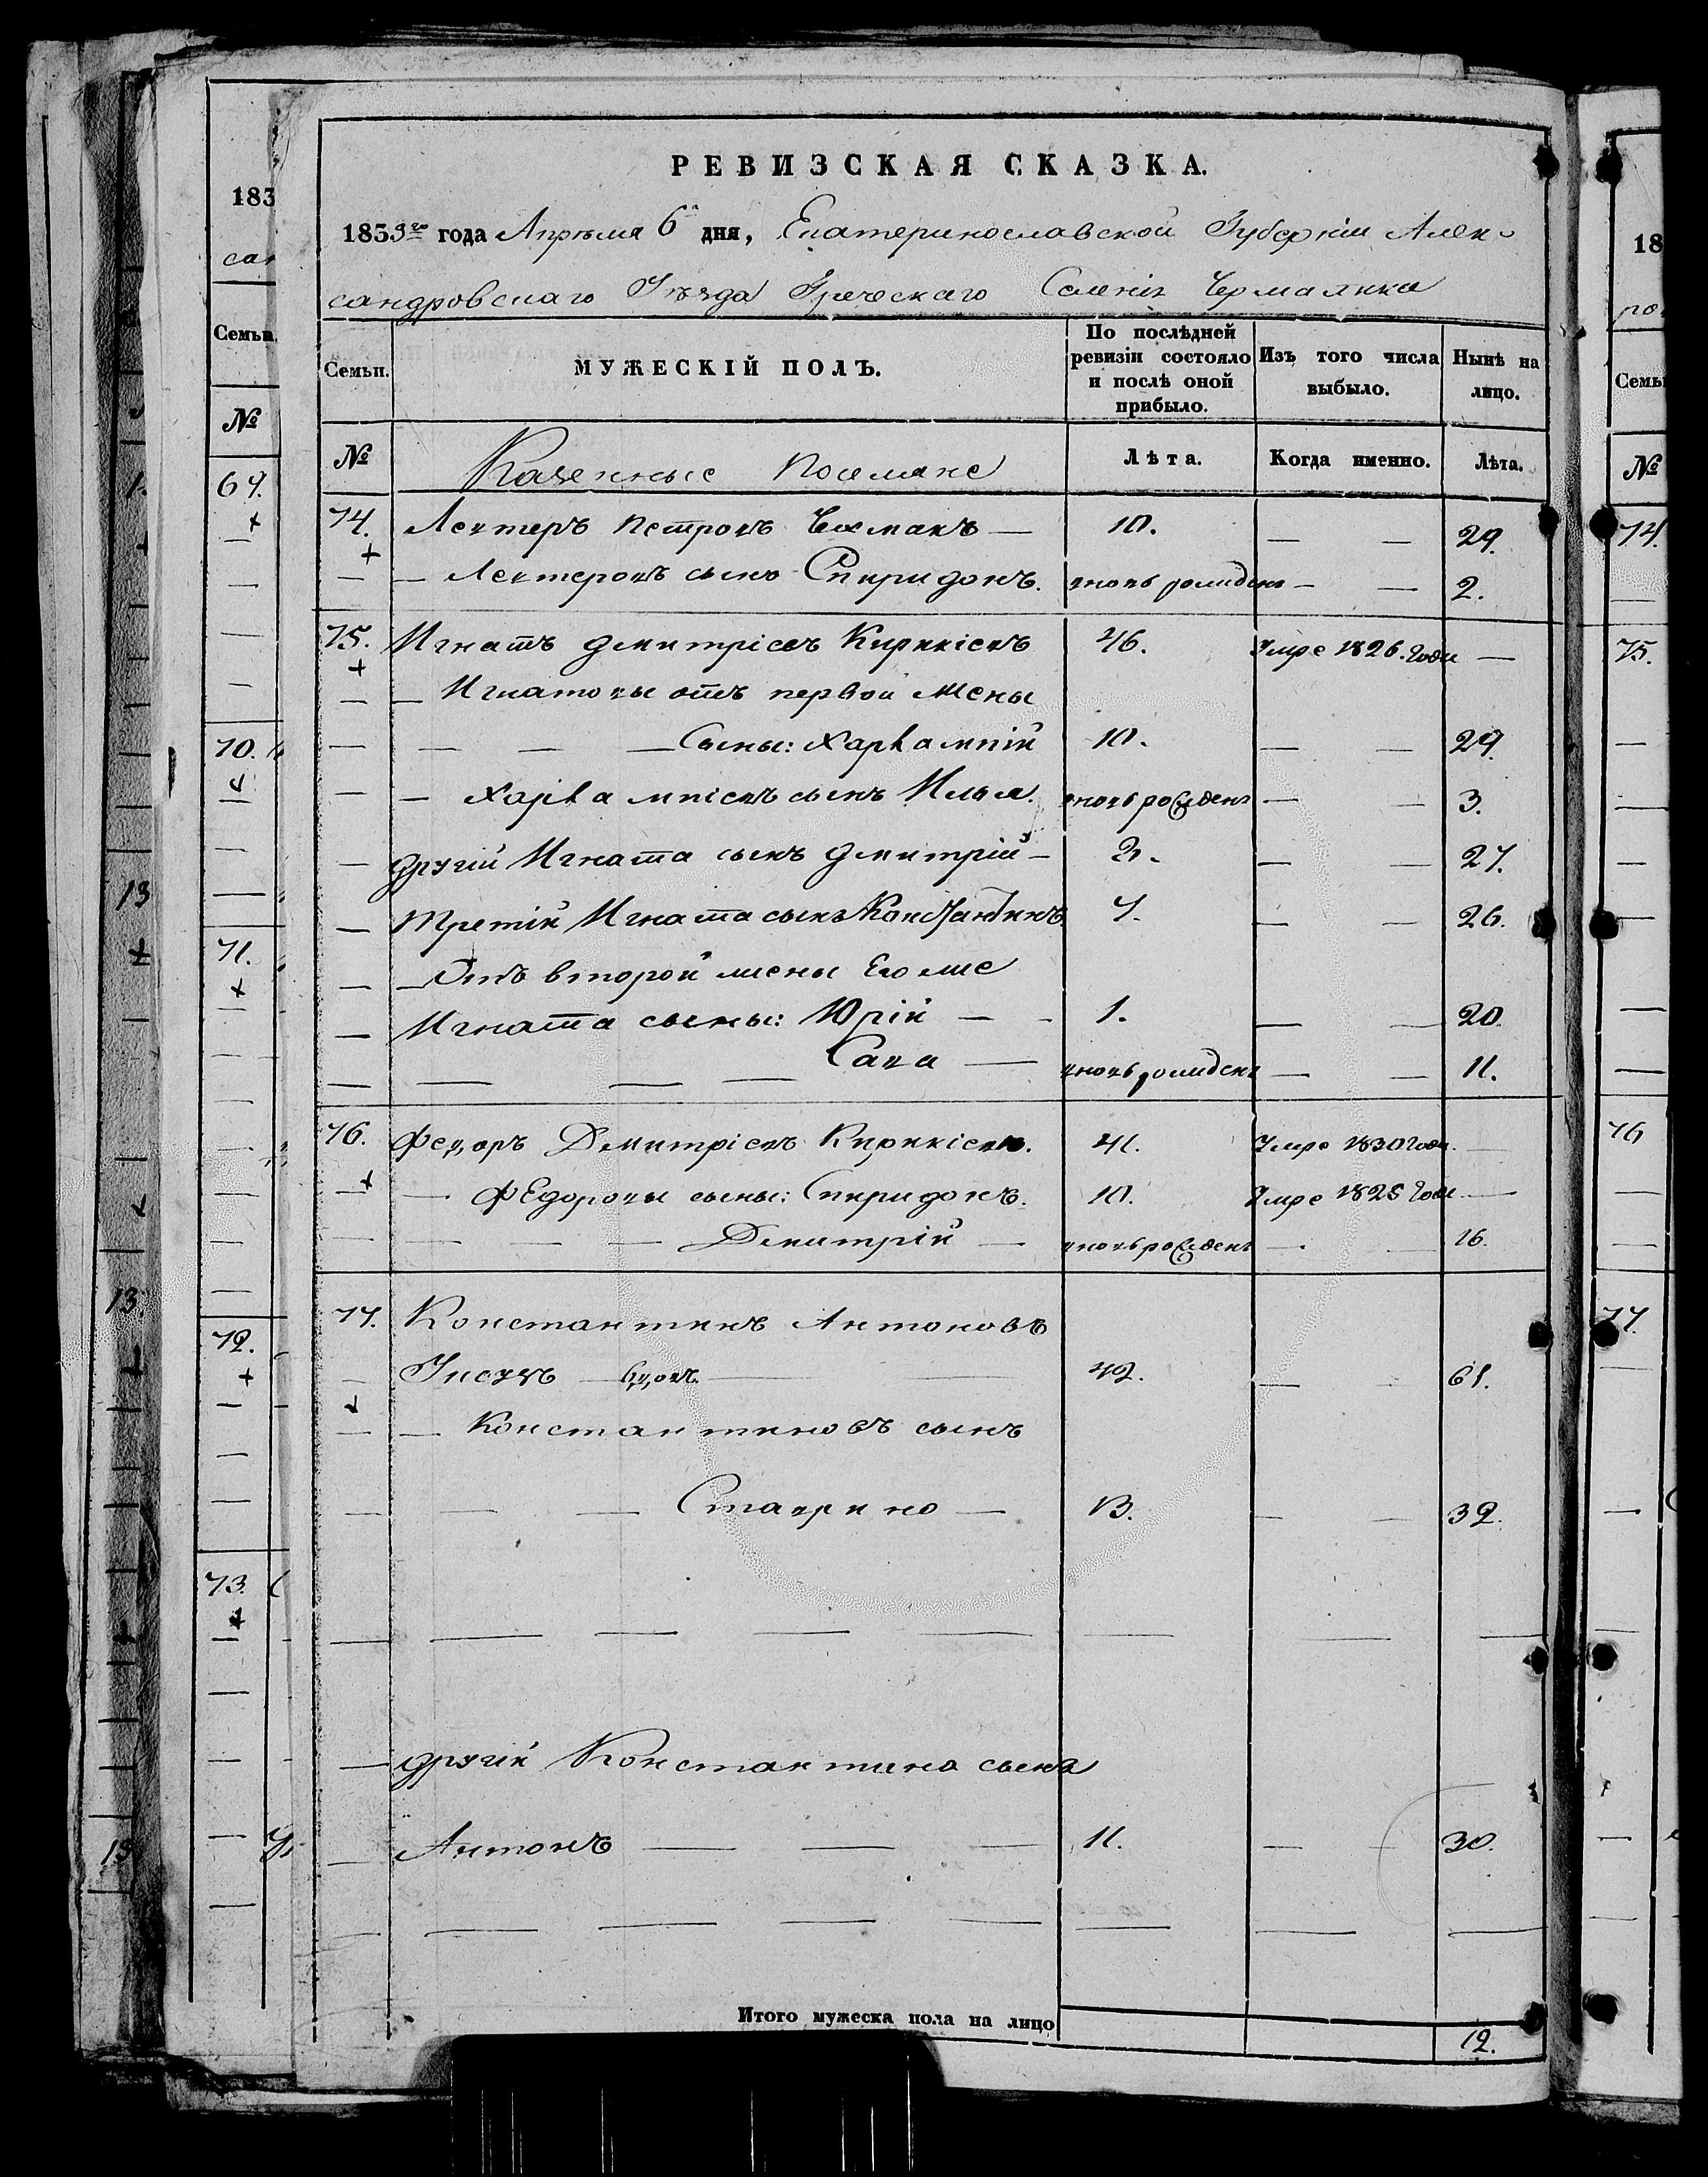 РЕВИЗСКАЯ СКАЗКА.
1835го года Апрѣля 6 дня, Екатеринославской Губерніи Алек-
сандровскаго Уѣзда Греческаго Селенія Чермалыка
Семьи.
МУЖЕСКІЙ ПОЛЪ.
По послѣдней ревизіи состояло и послѣ оной прибыло.
Изъ того числа выбыло.
Нынѣ на лицо.
№
Казенные поселяне
Лѣта.
Когда именно.
Лѣта.
74. Левтеръ Петровъ Чехмакъ — 10. — — 29.
— — Левтеровъ сынъ Спиридонъ. вновь рожденъ — — 2.
75. Игнатъ Дмитріевъ Кирикіевъ 46. Умре 1826. года —
— — Игнатовы отъ первой жены
— — — — Сыны: Харлампій 10. — — 29.
— — Харлампіевъ сынъ Илья. вновь рожденъ — — 3.
— другій Игната сынъ Дмитрій — — — 27.
— Третій Игната сынъ Константинъ 7. — — 26.
— — Отъ второй жены Его же
— Игната сыны: Юрій — — 1. — — 20.
— — — — Сава — вновь рожденъ — — 11.
76. Федоръ Дмитріевъ Кирикіевъ. 41. Умре 1830 года. —
— — Федоровы сыны: Спиридонъ. 10. Умре 1825 года —
— — — — Дмитрій — вновь рожденъ — — 16.
77. Константинъ Антоновъ
— — вдовъ — 42. — — 61.
— — Константиновъ сынъ
— — — Ставрино — 13. — — 32.
— другій Константина сынъ
— Антонъ — — — 11. — — 30.
Итого мужеска пола на лицо 12.
183
сан
Семьи.
№
69.
70.
71.
72.
73.
13
13.
13
18
ро
Семьи
№
74.
75.
76
77.